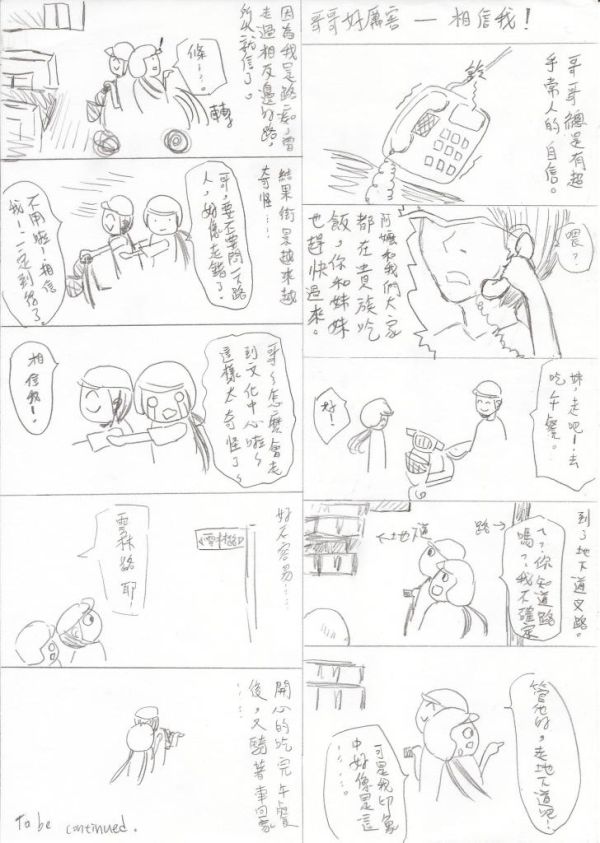 哥哥好厲害——相信我！
哥哥總是有超
乎常人的自信。
鈴
喂？
阿嬤和我們大家
都在貴族吃
飯，你和妹妹
也趕快過來。
妹，走吧！去
吃午餐。
好！
到了地下道叉路。
路→
←地下道
ㄟ？你知道路
嗎？我不確定
管他的，走地下道吧！
可是我印象
中好像是這
……。
因為我是路痴，曾
走過相反邊的路，
所以就信了。
條……
轉
結果街景越來越
奇怪……
哥，要不要問一下路
人，好像走錯了。
不用啦！相信
我！一定到給了。
哥～怎麼會走
到文化中心啦～
這樣太奇怪了～
相信我！
好不容易……
雲林路
雲林路耶！
開心的吃完午餐
後，又騎著車回家
……
To be continued.